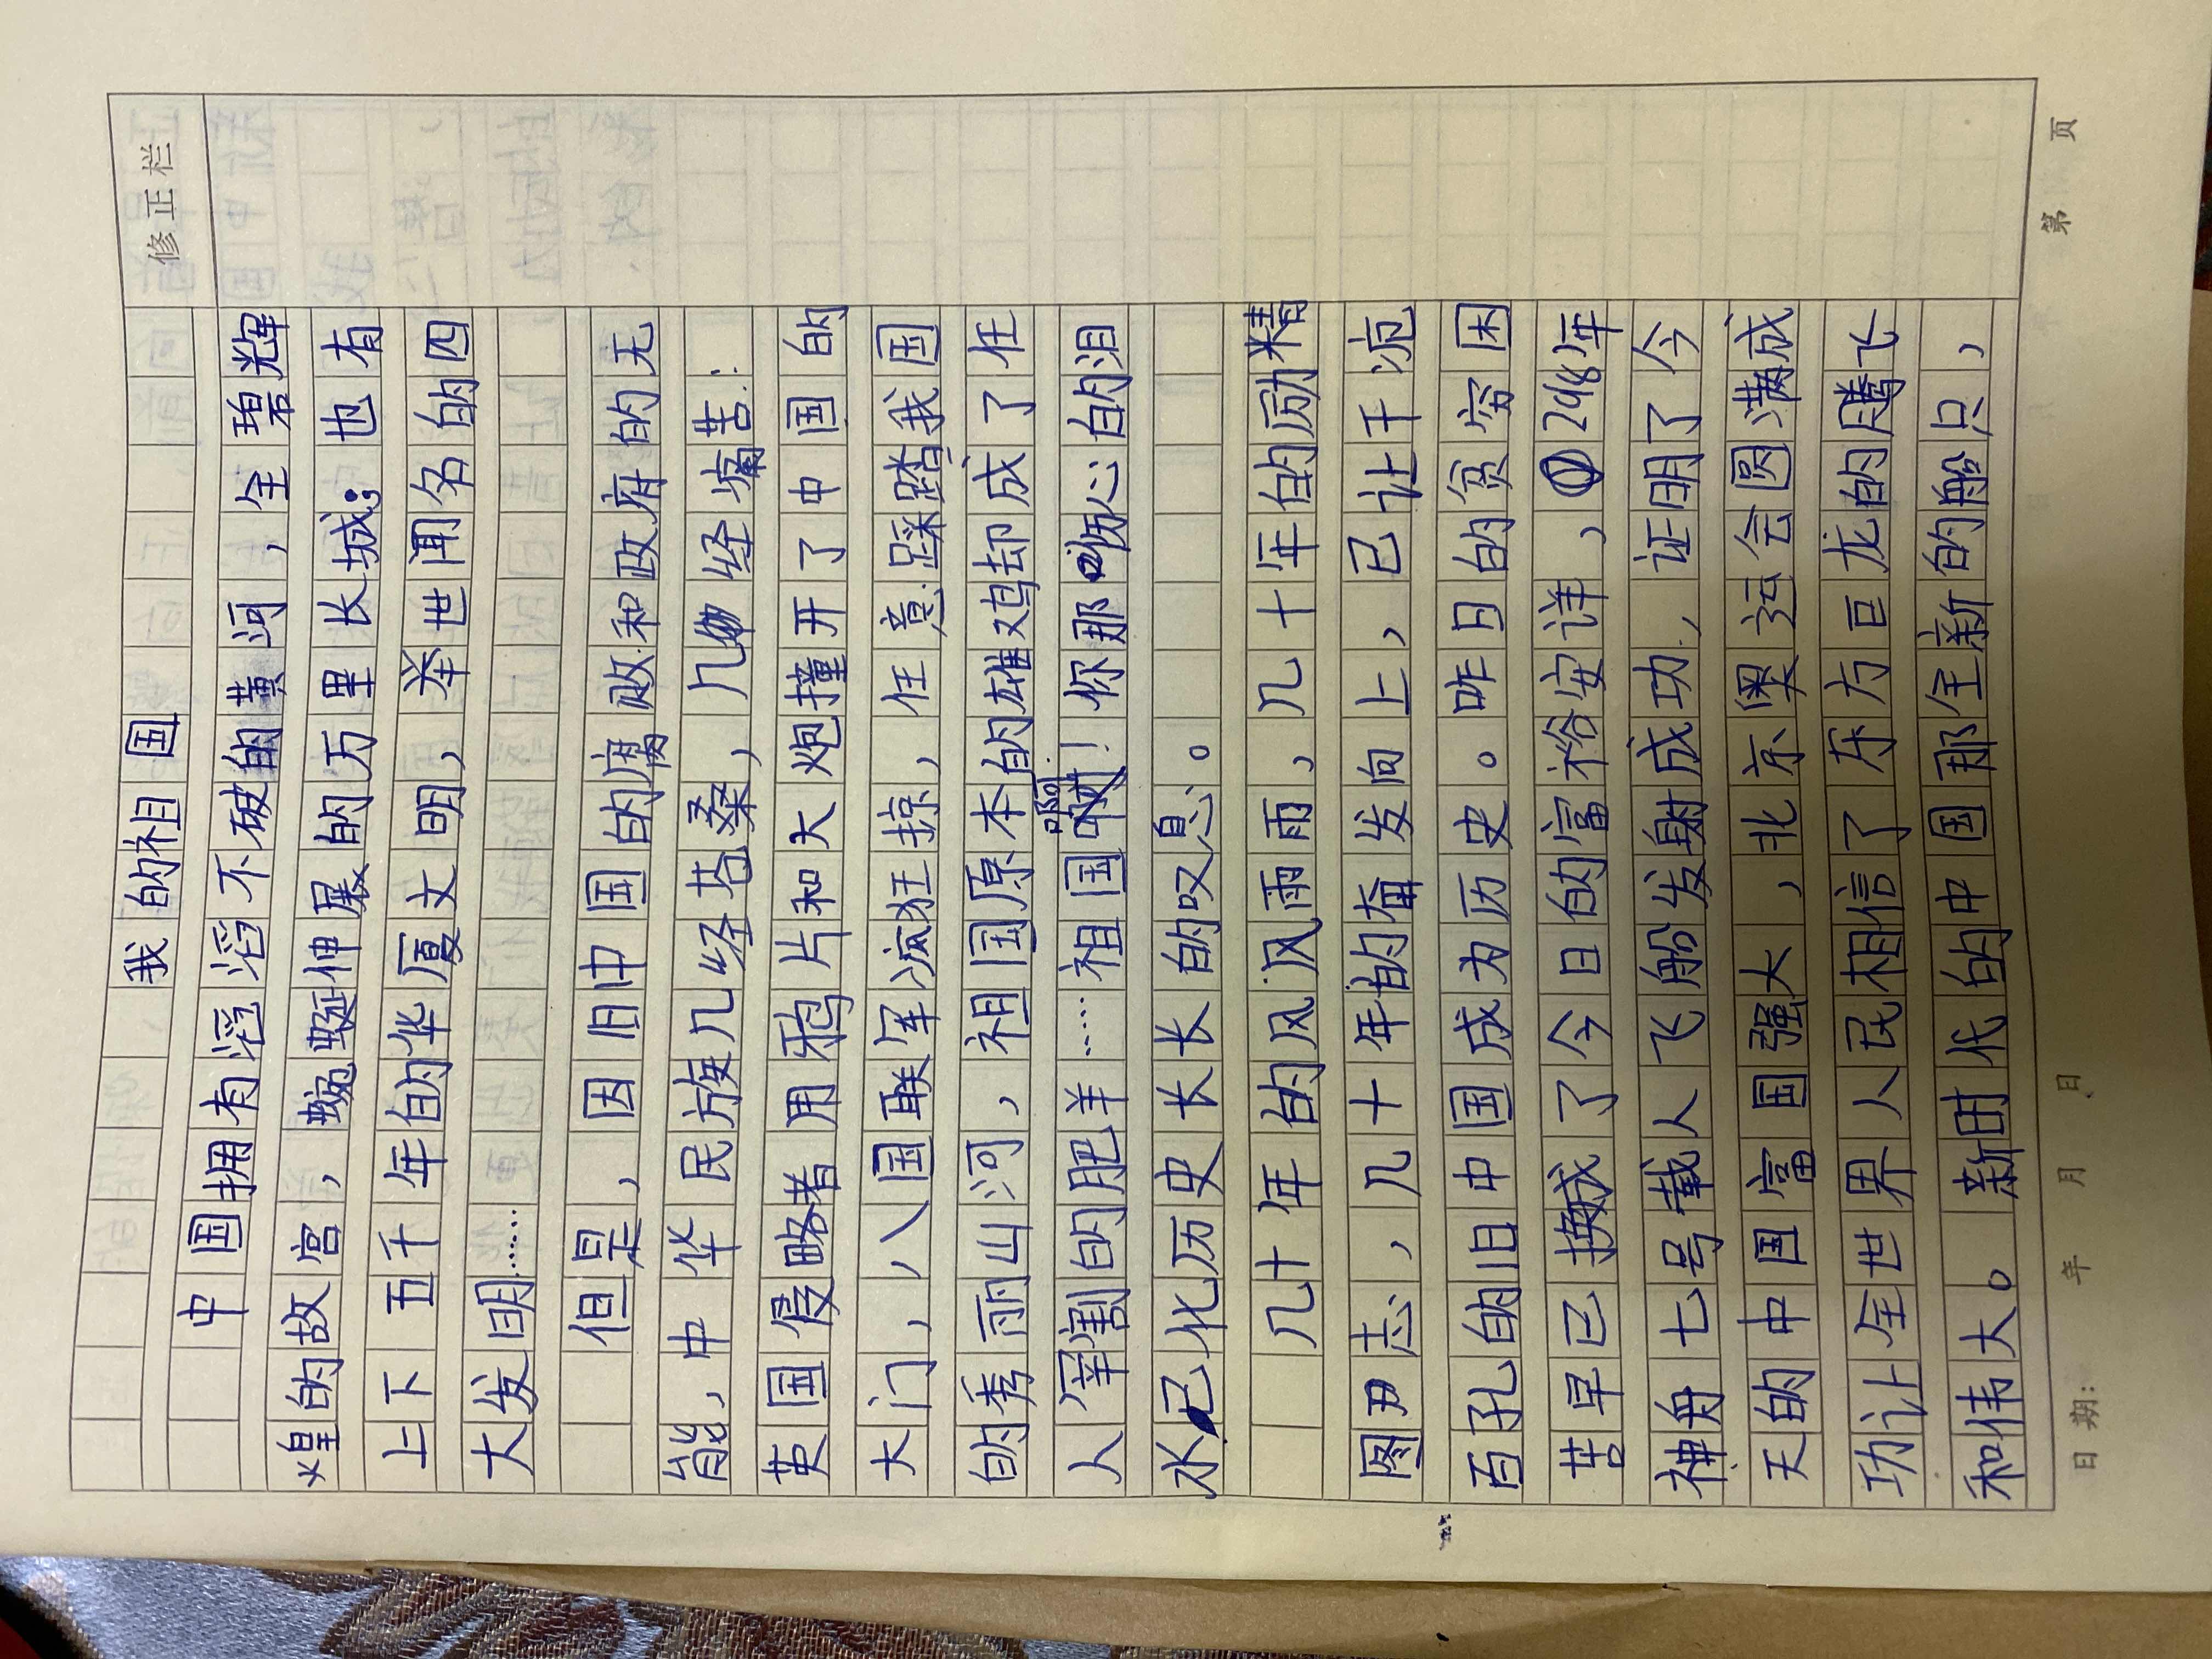 修正栏
我的祖国
中国拥有滔滔不破的黄河，全碧辉
煌的故宫，蜿蜒伸展的万里长城；也有
上下五千年的华厦文明，举世闻名的四
大发明……
但是，因旧中国的腐败和政府的无
能，中华民族几经苍桑，几经痛苦：
英国侵略者用鸦片和大炮撞开了中国的
大门，八国联军疯狂掠，任意踩踏我国
的秀丽山河，祖国原本的雄鸡却成了任
人宰割的肥羊……祖国啊！你那伤心的泪
水已化历史长长的叹息。
几十年的风风雨雨，几十年的励精
图志，几十年的奋发向上，已让千疮
百孔的旧中国成为历史。昨日的贫穷困
苦早已换成了今日的富裕安详，248年
神舟七号载人飞船发射成功，证明了今
天的中国富国强大，北京奥运会圆满成
功让全世界人民相信了东方巨龙的腾飞
和伟大。新时代的中国那全新的船只，
日期: 年 月 日 第 页